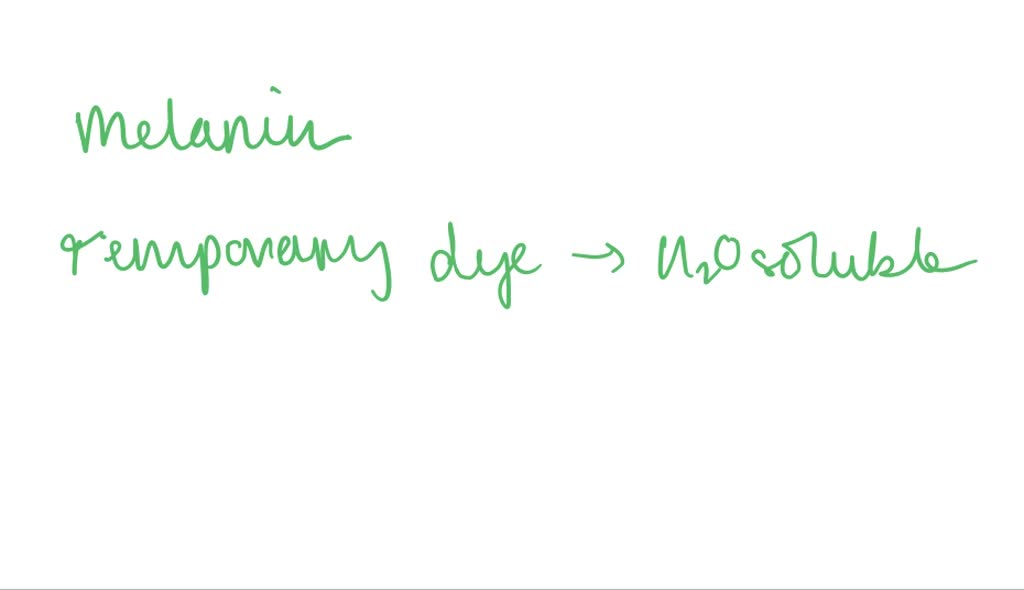 Melanin
Temporary dye → H₂O soluble